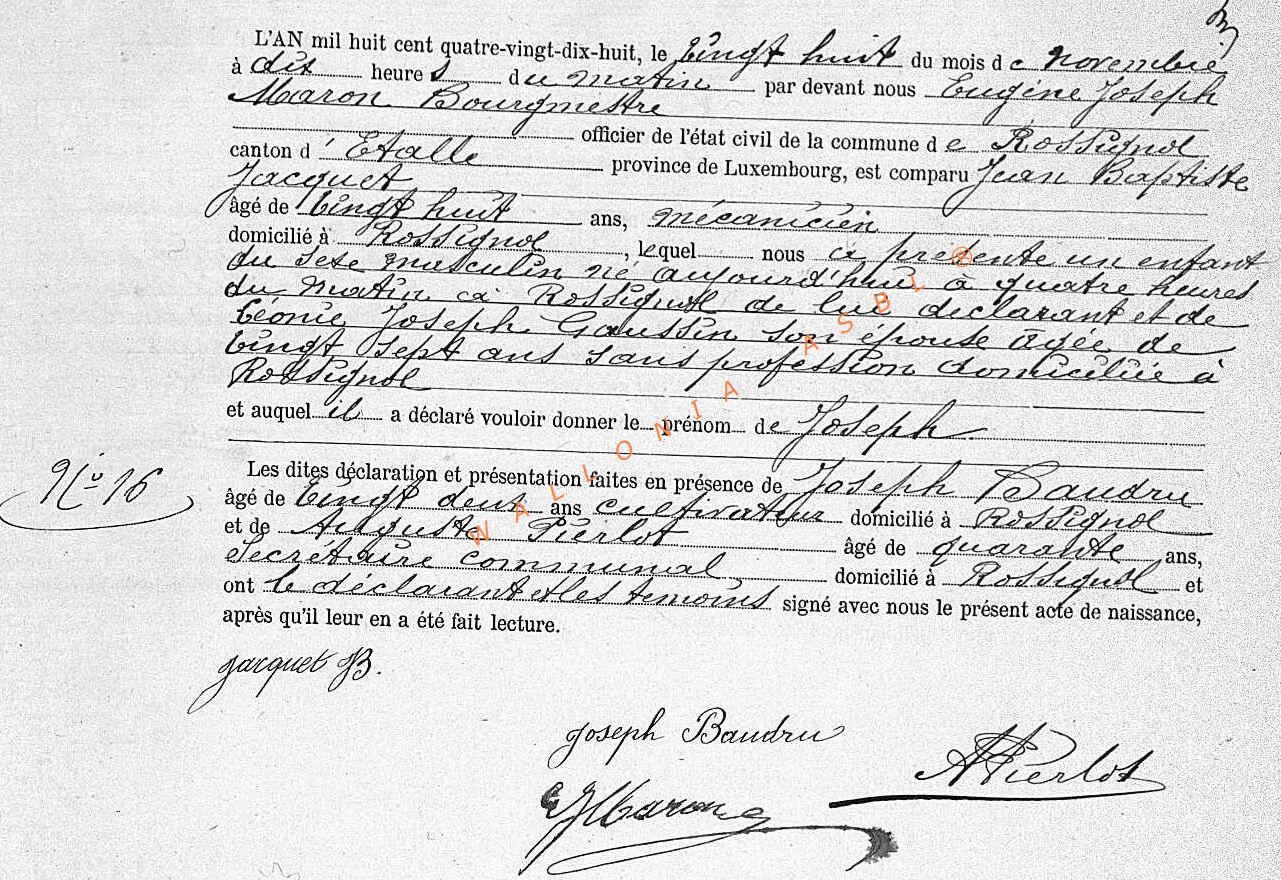 L'AN mil huit cent quatre-vingt-dix-huit, le vingt huit du mois de novembre
à dix heures du matin par devant nous Eugène Joseph
Maron Bourgmestre
officier de l'état civil de la commune de Rossignol
canton d'Etalle province de Luxembourg, est comparu Jean Baptiste
Jacquet
âgé de vingt huit ans, mécanicien
domicilié à Rossignol, lequel nous a présente un enfant
du sexe masculin né aujourd'hui à quatre heures
du matin à Rossignol de lui déclarant et de
Léonie Joseph Goussin son épouse âgée de
vingt sept ans sans profession domiciliée à
Rossignol
et auquel il a déclaré vouloir donner le prénom de Joseph.
Les dites déclaration et présentation faites en présence de Joseph Baudru
N° 16
âgé de vingt deux ans cultivateur domicilié à Rossignol
et de Auguste Pierlot âgé de quarante ans,
Secrétaire communal domicilié à Rossignol et
ont le déclarant et les témoins signé avec nous le présent acte de naissance,
après qu'il leur en a été fait lecture.
Jacquet JB.
Joseph Baudru
APierlot
EJMaron
WALLONIA ASBL ®